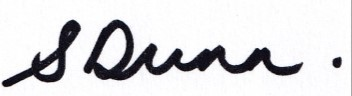 S Dunn.